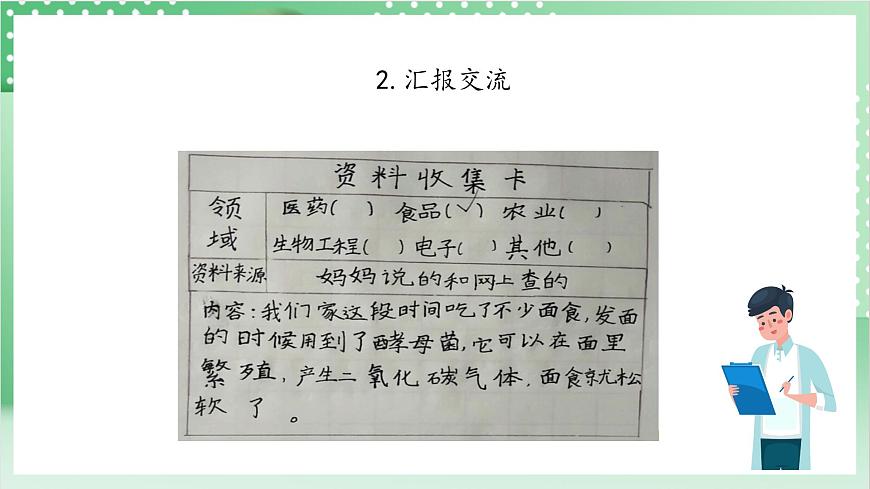 2.汇报交流
资料收集卡
领域 医药( ) 食品(✓) 农业( )
生物工程( ) 电子( ) 其他( )
资料来源 妈妈说的和网上查的
内容:我们家这段时间吃了不少面食,发面
的时候用到了酵母菌,它可以在面里
繁殖,产生二氧化碳气体,面食就松
软了。